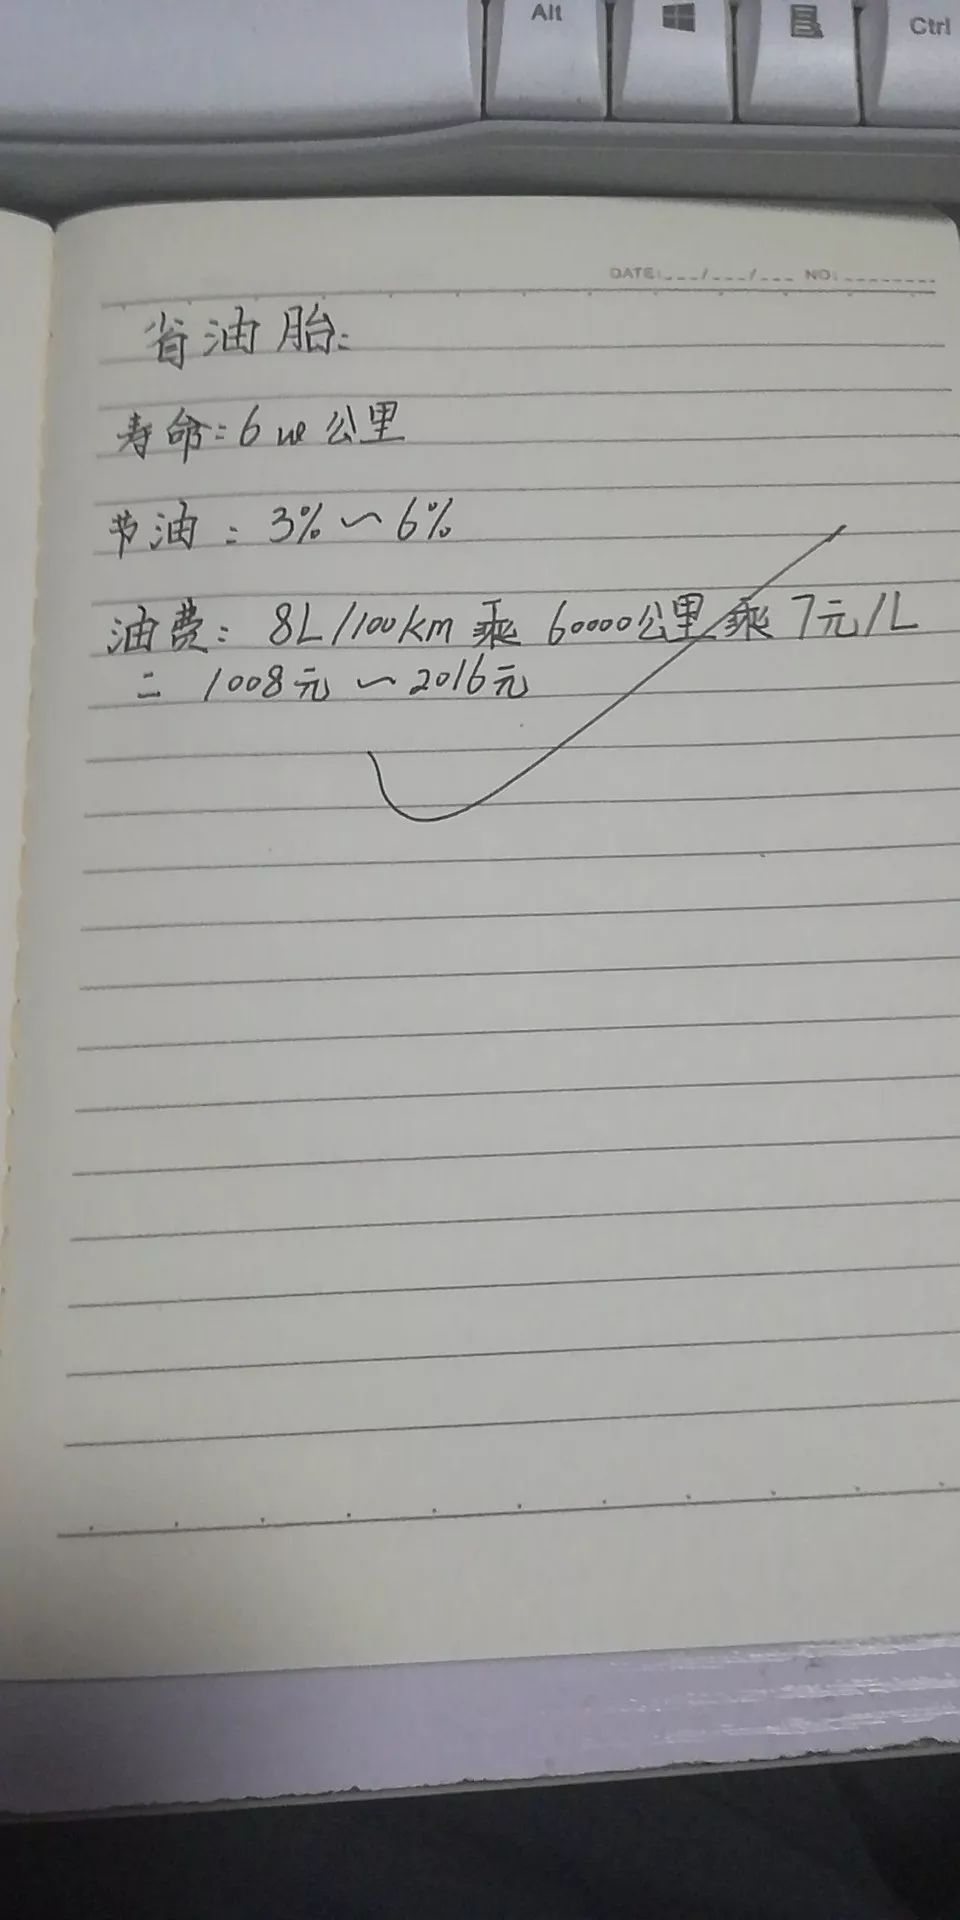 Alt Ctrl
DATE:___/___/___ NO:________
省油胎:
寿命:6w公里
节油:3%~6%
油费:8L/100km乘60000公里乘7元/L
=1008元~2016元